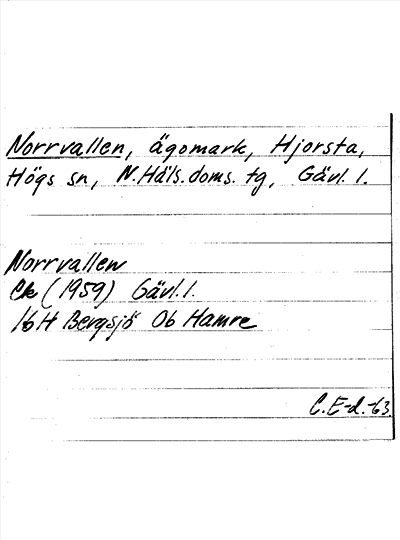 Norrvallen, ägomark, Hjorsta,
Högs sn, N.Häls.doms. tg, Gävl. l.
Norrvallen
Ek (1959) Gävl. l.
16H Bergsjö Ob Hamre
C.E-d.-63